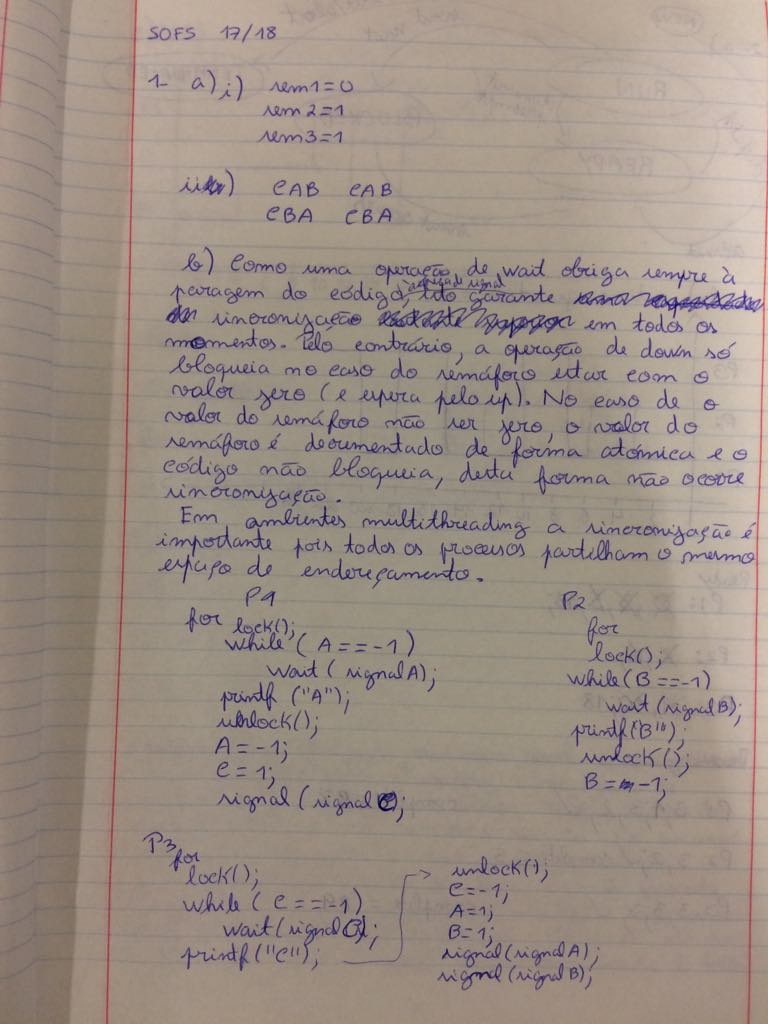 SOFS 17/18
1- a) i) sem1=0
sem2=1
sem3=1
ii) CAB CAB
CBA CBA
b) Como uma operação de wait obriga sempre à
paragem do código, isto garante
sincronização em todos os
momentos. Pelo contrário, a operação de down só
bloqueia no caso do semáforo estar com o
valor zero (e espera pelo up). No caso de o
valor do semáforo não ser zero, o valor do
semáforo é decrementado de forma atómica e o
código não bloqueia, desta forma não ocorre
sincronização.
Em ambientes multithreading a sincronização é
importante pois todos os processos partilham o mesmo
espaço de endereçamento.
P1
for lock();
while (A==-1)
wait(signalA);
printf ("A");
unlock();
A=-1;
C=1;
signal (signalC);
P2
for
lock();
while(B==-1)
wait(signalB);
printf("B");
unlock();
B=-1;
P3
for
lock();
while (C==-1)
wait(signalC);
printf("C");
unlock();
C=-1;
A=1;
B=1;
signal(signalA);
signal(signalB);